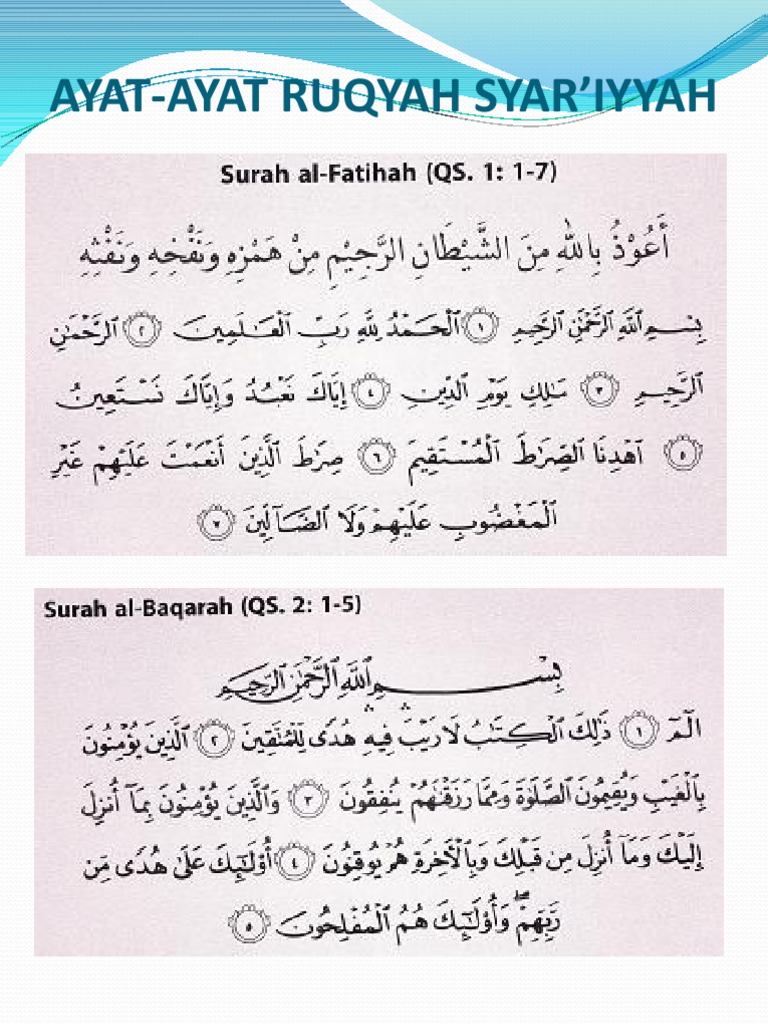 AYAT-AYAT RUQYAH SYAR’IYYAH
Surah al-Fatihah (QS. 1: 1-7)
أَعُوْذُ بِاللهِ مِنَ الشَّيْطَانِ الرَّجِيْمِ مِنْ هَمْزِهِ وَنَفْخِهِ وَنَفْثِهِ
بِسْمِ ٱللَّهِ ٱلرَّحْمَٰنِ ٱلرَّحِيمِ ١ ٱلْحَمْدُ لِلَّهِ رَبِّ ٱلْعَٰلَمِينَ ٢ ٱلرَّحْمَٰنِ
ٱلرَّحِيمِ ٣ مَٰلِكِ يَوْمِ ٱلدِّينِ ٤ إِيَّاكَ نَعْبُدُ وَإِيَّاكَ نَسْتَعِينُ
٥ ٱهْدِنَا ٱلصِّرَٰطَ ٱلْمُسْتَقِيمَ ٦ صِرَٰطَ ٱلَّذِينَ أَنْعَمْتَ عَلَيْهِمْ غَيْرِ
ٱلْمَغْضُوبِ عَلَيْهِمْ وَلَا ٱلضَّآلِّينَ ٧
Surah al-Baqarah (QS. 2: 1-5)
بِسْمِ ٱللَّهِ ٱلرَّحْمَٰنِ ٱلرَّحِيمِ
الٓمٓ ١ ذَٰلِكَ ٱلْكِتَٰبُ لَا رَيْبَ ۛ فِيهِ ۛ هُدًى لِّلْمُتَّقِينَ ٢ ٱلَّذِينَ يُؤْمِنُونَ
بِٱلْغَيْبِ وَيُقِيمُونَ ٱلصَّلَوٰةَ وَمِمَّا رَزَقْنَٰهُمْ يُنفِقُونَ ٣ وَٱلَّذِينَ يُؤْمِنُونَ بِمَآ أُنزِلَ
إِلَيْكَ وَمَآ أُنزِلَ مِن قَبْلِكَ وَبِٱلْءَاخِرَةِ هُمْ يُوقِنُونَ ٤ أُو۟لَٰٓئِكَ عَلَىٰ هُدًى مِّن
رَّبِّهِمْ ۖ وَأُو۟لَٰٓئِكَ هُمُ ٱلْمُفْلِحُونَ ٥